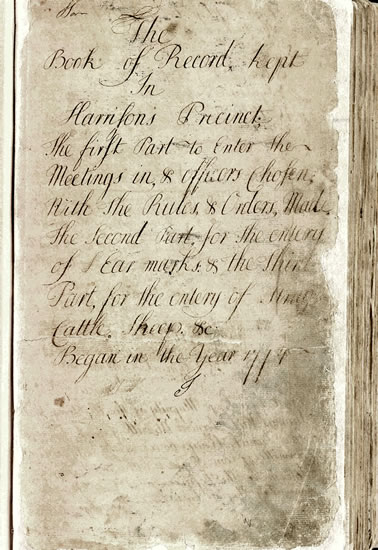 The
Book of Record, kept
In
Harrison's Precinct.
The first Part to Enter the
Meetings in, & officers Chosen,
With the Rules, & Orders, Mad
The Second Part, for the entery
of Ear marks, & the thir
Part, for the entery of
Cattle, Sheep, &c
Began in the Year